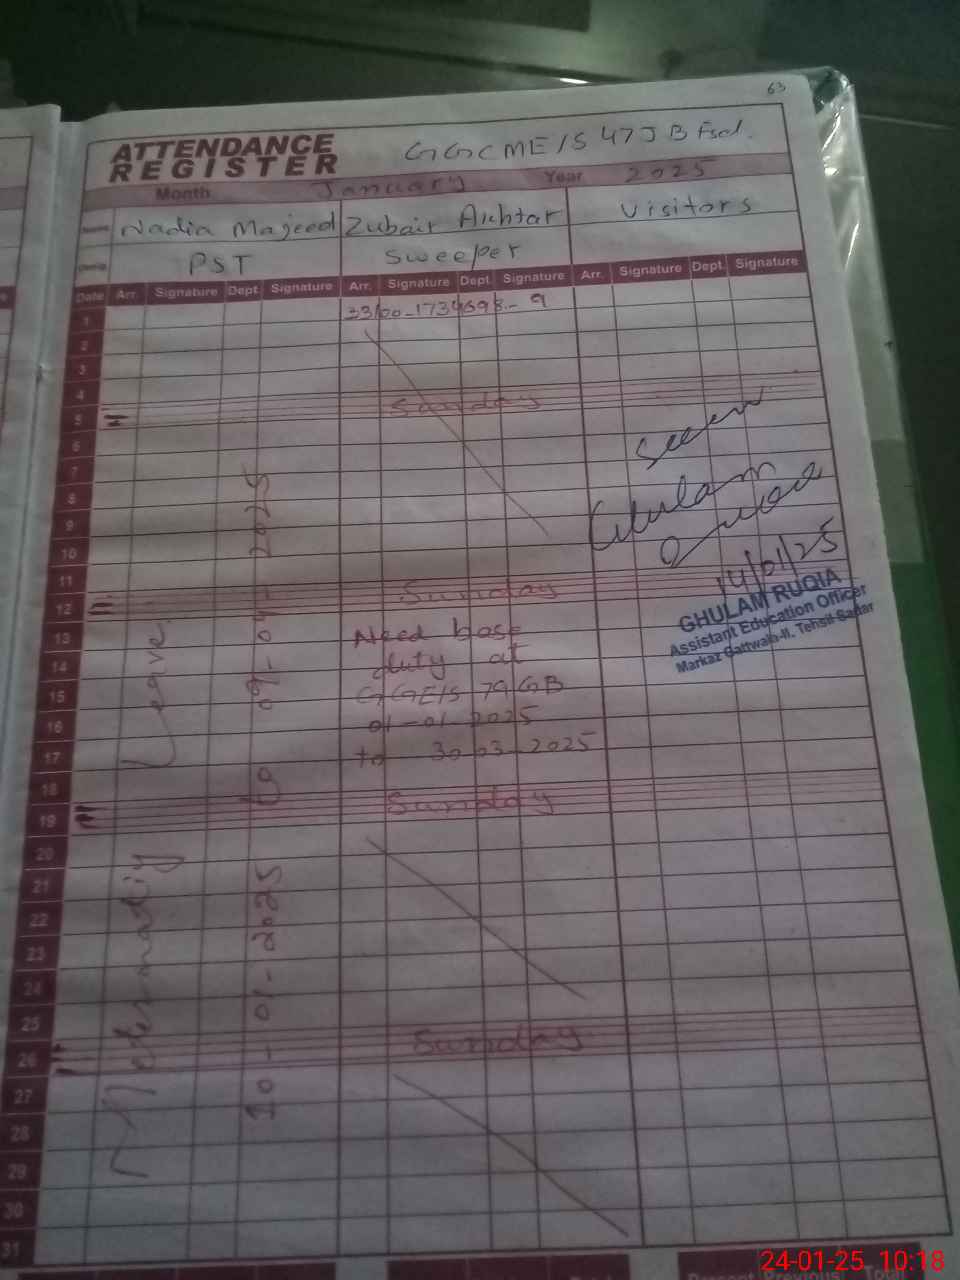 63
ATTENDANCE
REGISTER
GGCME/S 47JB Fsd.
Month January Year 2025
Name Nadia Majeed Zubair Akhtar Visitors
PST Sweeper
Date Arr. Signature Dept. Signature Arr. Signature Dept. Signature Arr. Signature Dept. Signature
1
2
3
4
Sunday
5
6
7
8
9
10
11
Sunday
12
13 Need base
14 duty at
15 GGE/S 79GB
16 01-01-2025
17 to 30-03-2025
18
Sunday
19
20
21
22
23
24
25
Sunday
26
27
28
29
30
31
Maternatiy Leave
10-01-2025 to 09-04-2025
Seen
Ghulam
14/01/25
GHULAM RUQIA
Assistant Education Officer
Markaz Gattwala-II, Tehsil Sadar
24-01-25 10:18